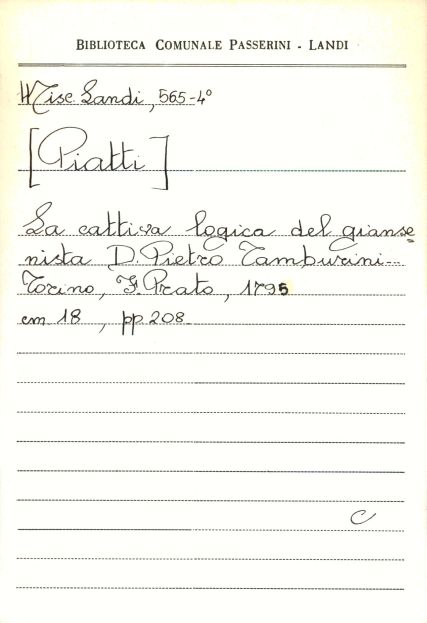 BIBLIOTECA COMUNALE PASSERINI - LANDI
Misc. Landi, 565-4°
[Piatti]
La cattiva logica del gianse=
nista D. Pietro Tamburini...
Torino, F. Prato, 1795
cm 18, pp. 208.
C